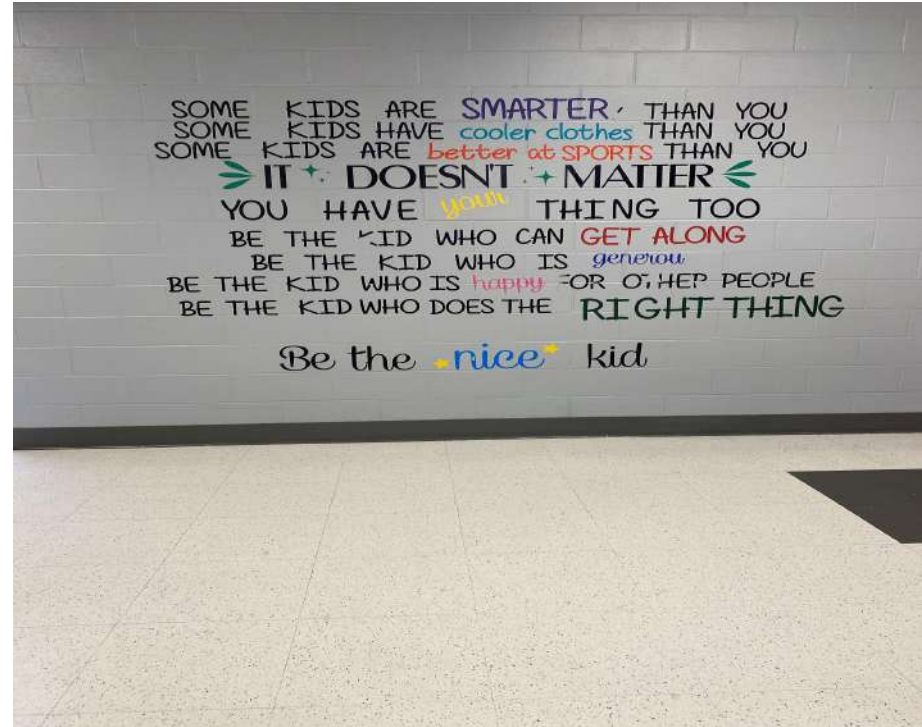 SOME KIDS ARE SMARTER THAN YOU
SOME KIDS HAVE cooler clothes THAN YOU
SOME KIDS ARE better at SPORTS THAN YOU
IT DOESN'T MATTER
YOU HAVE your THING TOO
BE THE KID WHO CAN GET ALONG
BE THE KID WHO IS generou
BE THE KID WHO IS happy FOR OTHER PEOPLE
BE THE KID WHO DOES THE RIGHT THING
Be the nice kid